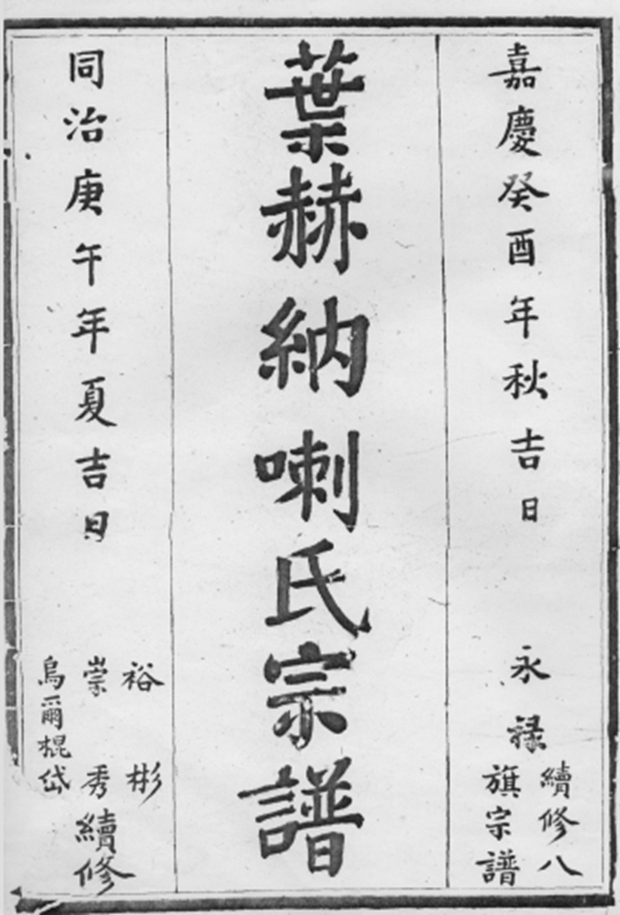 嘉慶癸酉年秋吉日
永祿
續修八
旗宗譜
葉赫納喇氏宗譜
同治庚午年夏吉日
裕彬
崇秀
烏爾棍岱
續修